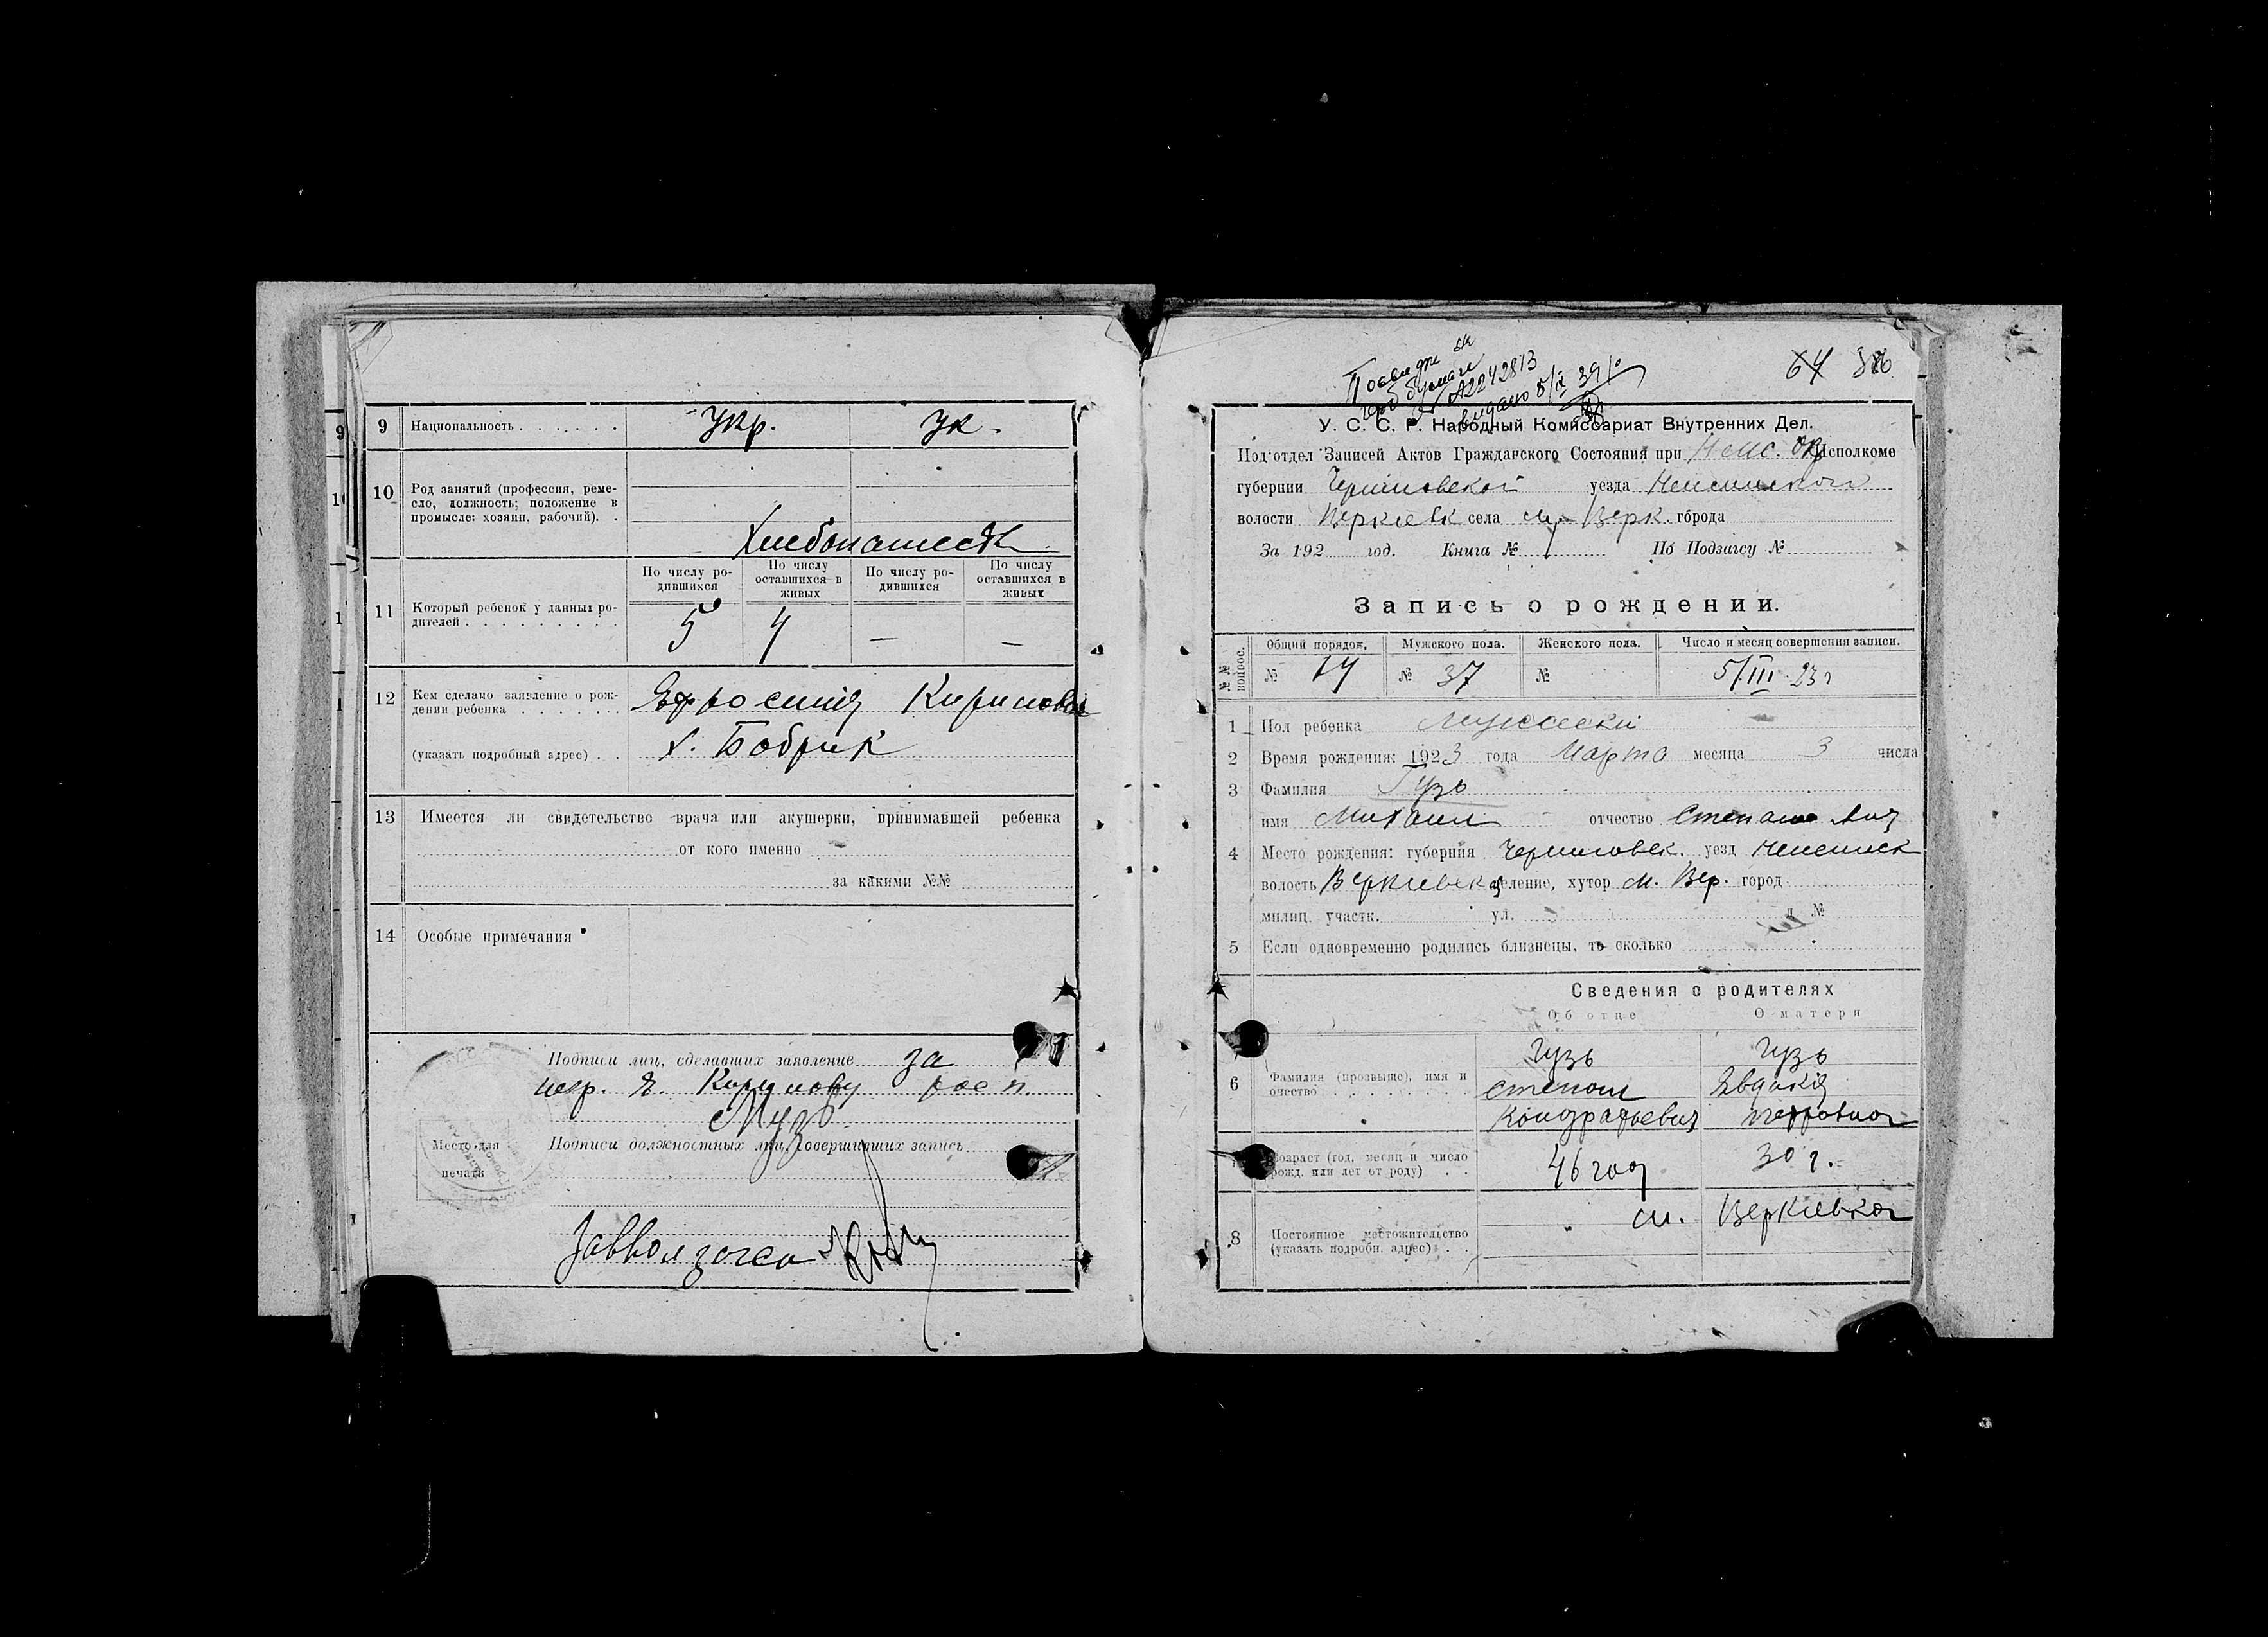 9 Национальность . . . . . . . укр. ук.
10 Род занятий (профессия, реме-
сло, должность; положение в
промысле: хозяин, рабочий). .
По числу ро-
дившихся
По числу
оставшихся в
живых
По числу ро-
дившихся
По числу
оставшихся в
живых
11 Который ребенок у данных ро-
дителей . . . . . . . . . 5 4 — —
12 Кем сделано заявление о рож-
дении ребенка . . . . . . .
(указать подробный адрес) . . х. Бобрик
13 Имеется ли свидетельство врача или акушерки, принимавшей ребенка
от кого именно
за какими №№
14 Особые примечания
Подписи лиц, сделавших заявление за
Подписи должностных лиц, совершивших запись
Место для
печати
64
У. С. С. Р. Народный Комиссариат Внутренних Дел.
Подотдел Записей Актов Гражданского Состояния при Исполкоме
губернии Черниговской уезда
волости села м. Верк. города
За 192 год. Книга № По Подзагсу №
Запись о рождении.
№ №
вопрос.
Общий порядок, Мужского пола. Женского пола. Число и месяц совершения записи.
№ 74 № 37 № 5/III 23 г
1 Пол ребенка мужской
2 Время рождения: 1923 года Марта месяца 3 числа
3 Фамилия Гузь
имя Михаил отчество
4 Место рождения: губерния Черниговск. уезд
волость Веркиевск селение, хутор м. Вер. город
милиц. участк. ул. д. №
5 Если одновременно родились близнецы, то сколько
Сведения о родителях
Об отце О матери
Гузь Гузь
6 Фамилия (прозвище), имя и
очество . . . . . . . . Степан Явдокія
Кондратьевич Петровна
7 Возраст (год, месяц и число
рожд. или лет от роду) . . 46 год 30 г.
8 Постоянное местожительство
(указать подробн. адрес) . . м. Веркиевка